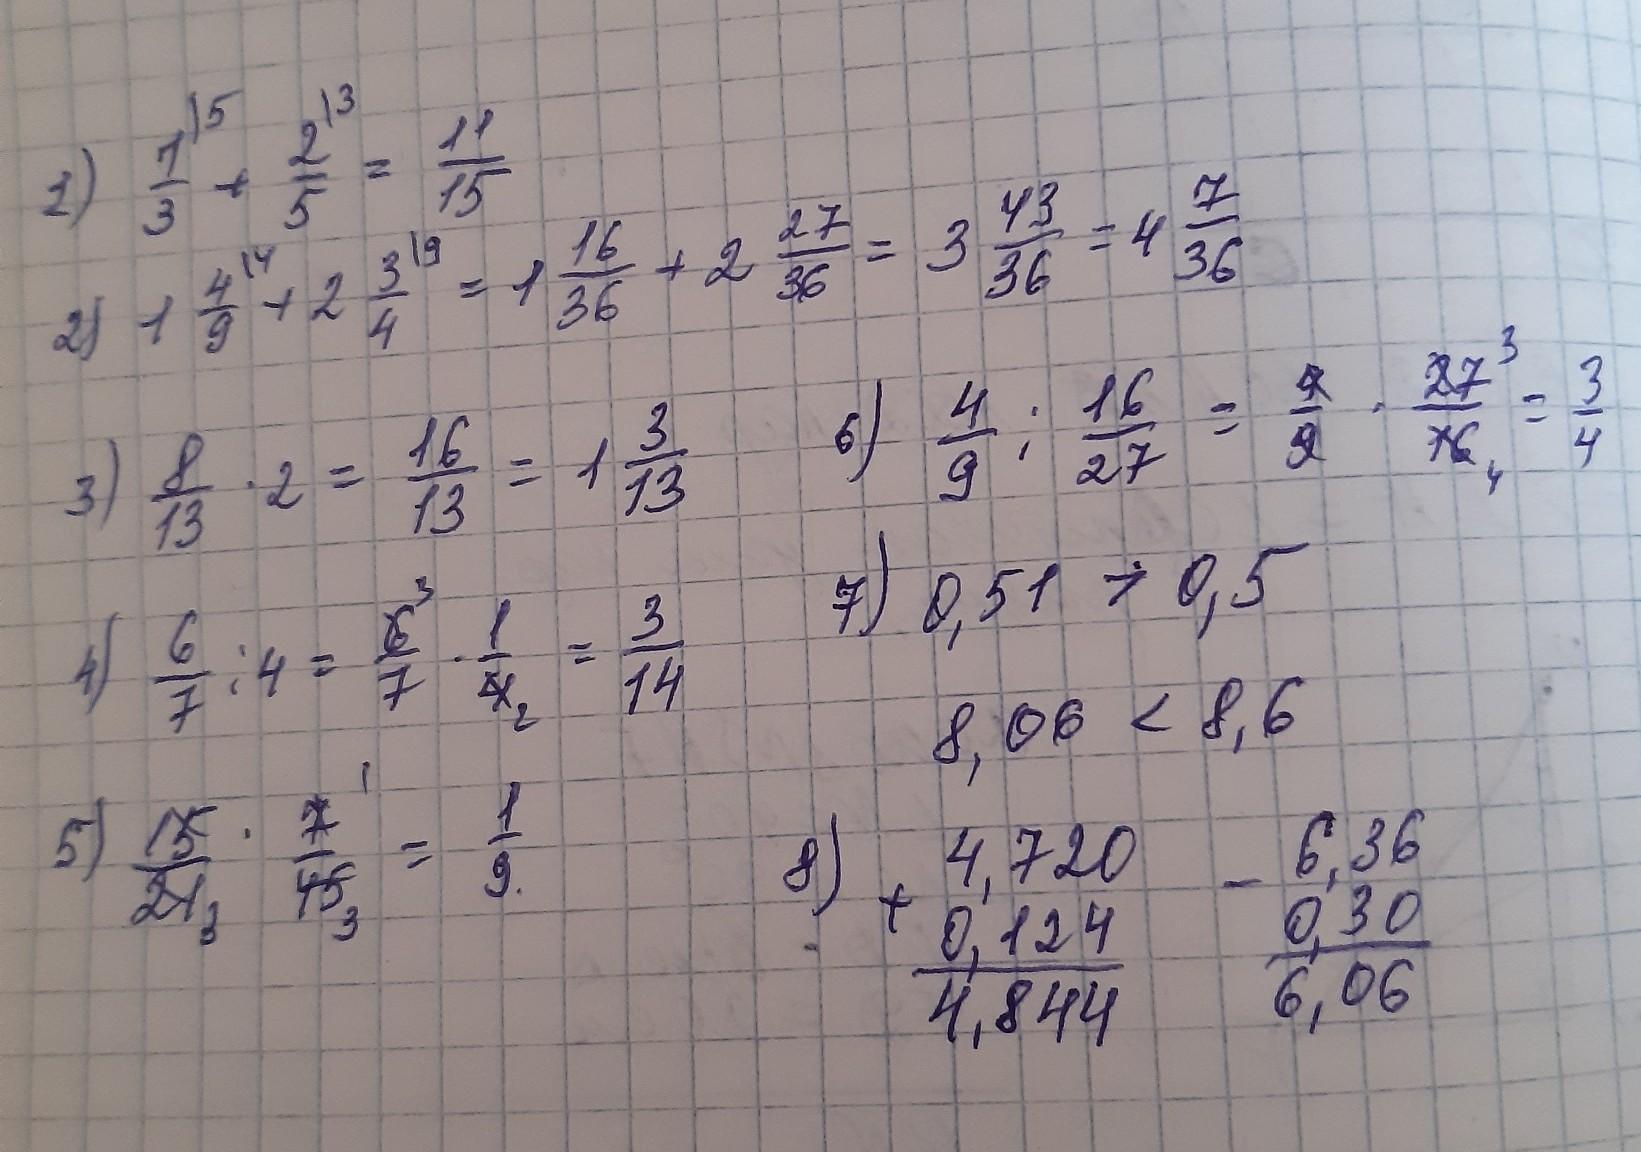 1) 1/3 \5 + 2/5 \3 = 11/15
2) 1 4/9 \4 + 2 3/4 \9 = 1 16/36 + 2 27/36 = 3 43/36 = 4 7/36
3) 8/13 · 2 = 16/13 = 1 3/13
4) 6/7 : 4 = 6/7 3 · 1/4 2 = 3/14
5) 15/21 3 · 7/45 1 3 = 1/9.
6) 4/9 : 16/27 = 4/9 · 27/16 3 4 = 3/4
7) 0,51 > 0,5
8,06 < 8,6
8) + 4,720
0,124
4,844
- 6,36
0,30
6,06